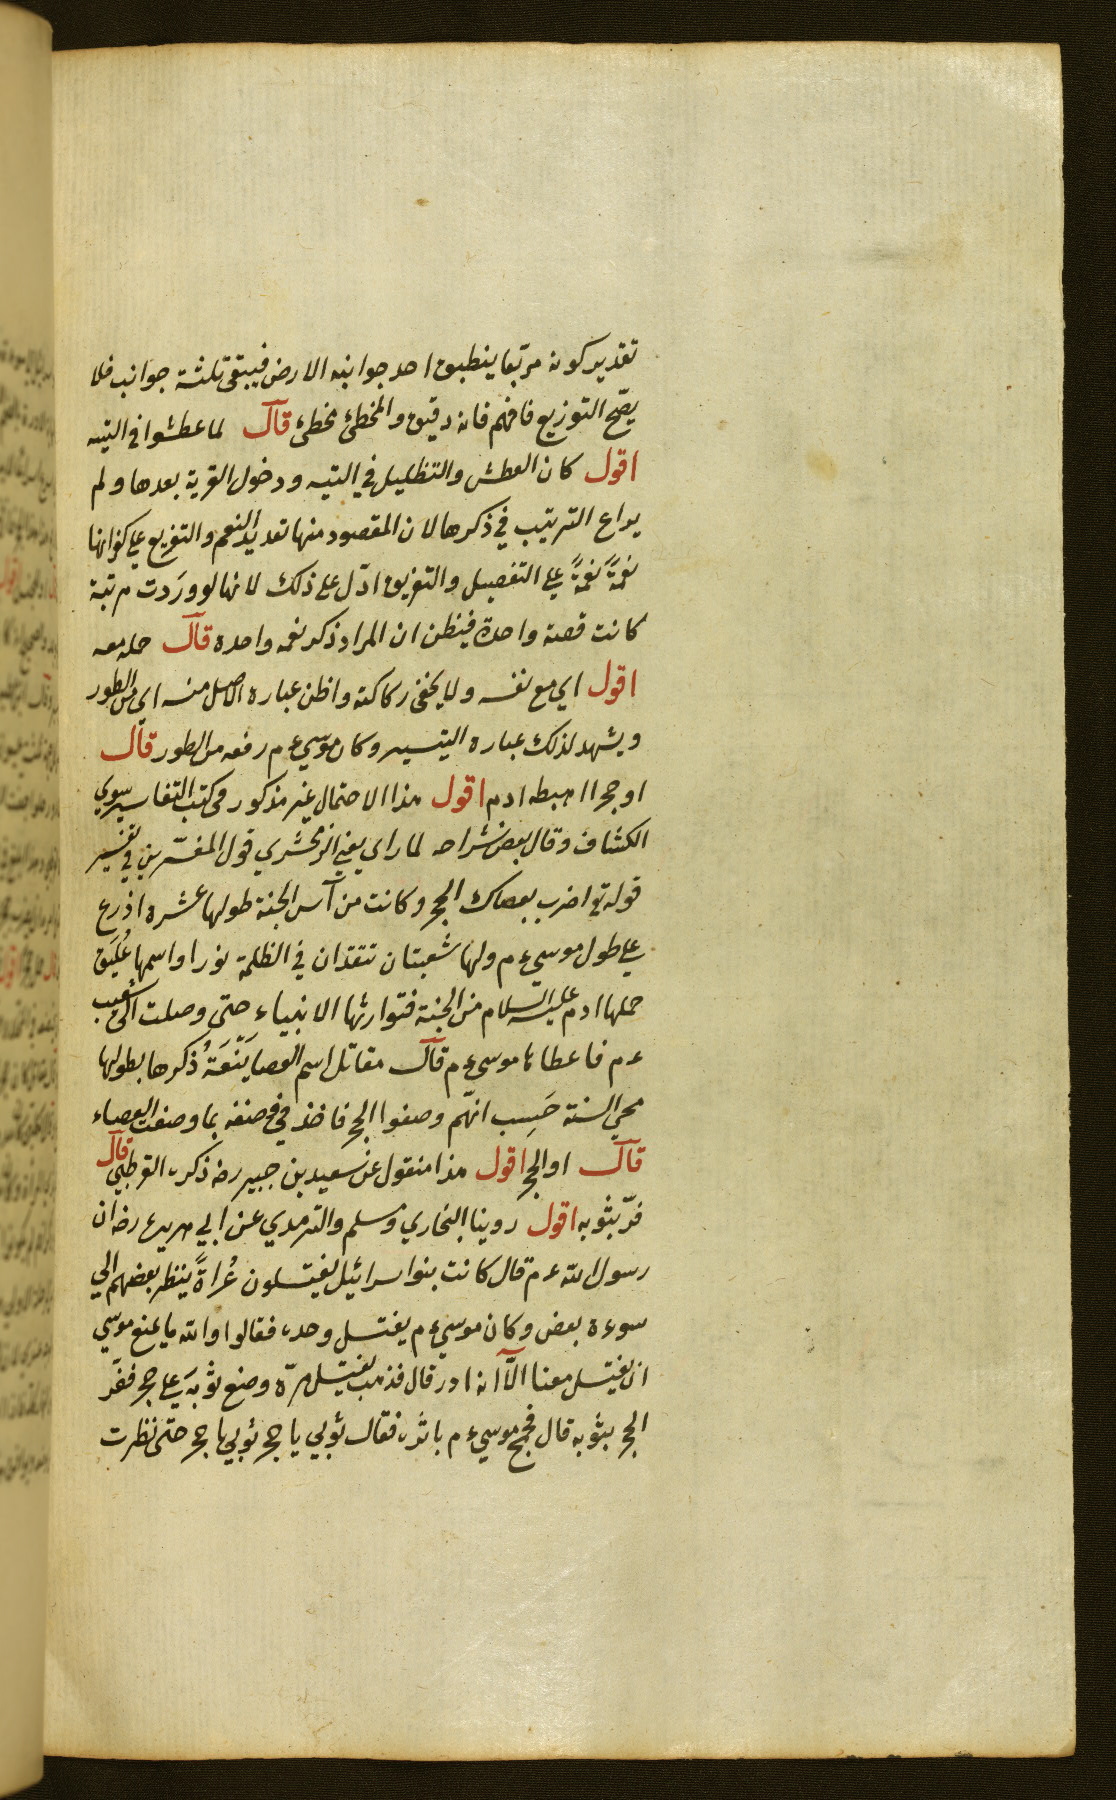 تقدير كونه مربّعا ينطبق احد جوانبه الارض فيبقى ثلثة جوانب فلا
يصّح التوزيع فافهم فانه دقيق والمخطئ مخطئ قال لما عطشوا في التيه
اقول كان العطش والتظليل في التيه ودخول القرية بعدها ولم
يراع الترتيب في ذكرها لان المقصود منها تعديد النعم والتفريع على كفرانها
نعمةً نعمةً على التفصيل والتفريق ادّل على ذلك لانها لو ورَدت مرتبة
كانت قصة واحدة فيظن ان المراد ذكر نعمه واحده قال حمله معه
اقول اي مع نفسه ولا يخفى ركاكته واظن عباره الاصل منه اي من الطور
ويشهد لذلك عباره التيسير وكان موسى ءم رفعه من الطور قال
او حجرا اهبطه ادم اقول هذا الاحتمال غير مذكور في كتب التفاسير سوى
الكشاف وقال بعض شراحه لما راى يعني الزمخشري قول المفسّرين في تفسير
قوله تع اضرب بعصاك الحجر وكانت من آس الجنة طولها عشره اذرع
على طول موسى ءم ولها شعبتان تتقدان في الظلمة نورا واسمها عُلَيَق
حملها ادم عليه السلام من الجنة فتوارثها الانبياء حتى وصلت الى شعيب
ءم فاعطاها موسى ءم قال مقاتل اسم العصا نَبْعَةُ ذكرها بطولها
محي السنة حَسِب انهّم وصفوا الحجر فاخذ في وصفه بما وصف العصاء
قال او الحجر اقول هذا منقول عن سعيد بن جبير رضه ذكره القرطبي قال
فرّ بثوبه اقول روينا البخاري ومسلم والترمدي عن ابي هريره رضه ان
رسول الله ءم قال كانت بنوا سرائيل يغتسلون عُراةً ينظر بعضهم الى
سوءة بعض وكان موسى ءم يغتسل وحده فقالوا والله ما يمنع موسى
ان يغتسل معنا الّا انه ادر قال فذهب يغتسل مرّه وضع ثوبَه على حجر ففرّ
الحجر بثوبه قال فجمح موسى ءم باثره فقال ثوبي يا حجر ثوبي يا حجر حتى نظرت